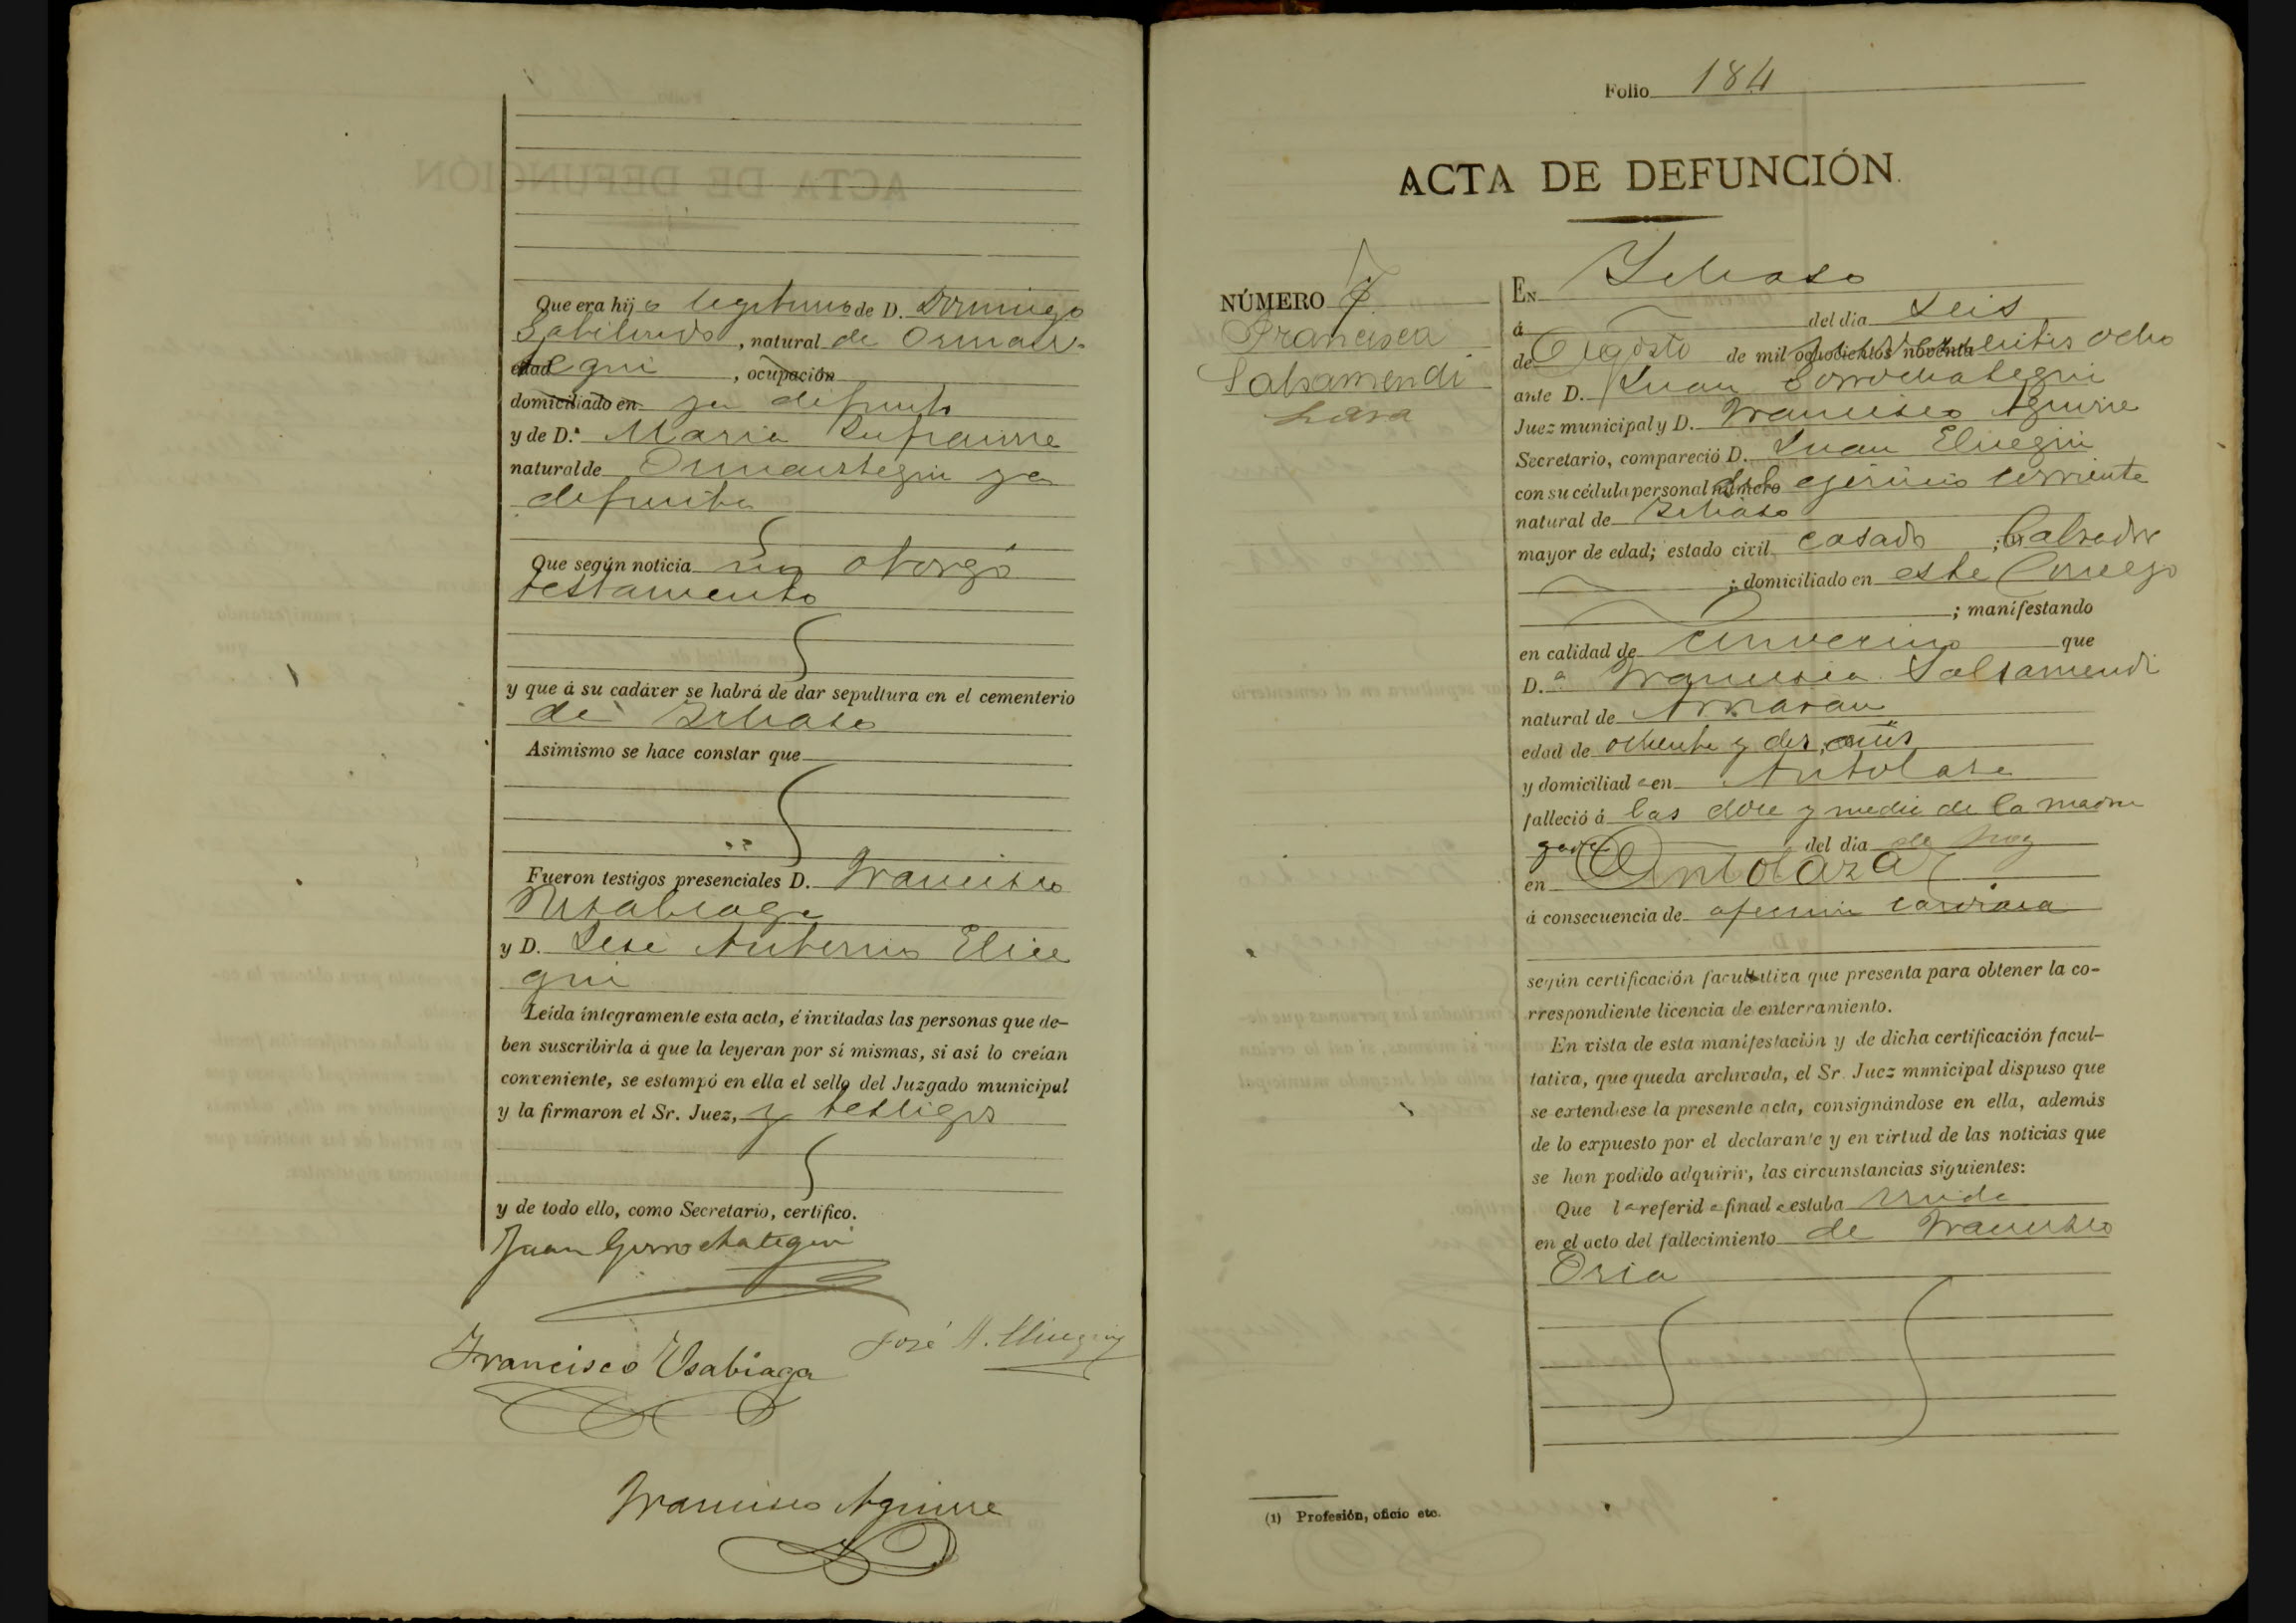 Que era hijo legitimo de D. Domingo
, natural de Ormaiz-
edad tegui , ocupación
domiciliado en ya difunto
y de D.ª Maria
natural de Ormaiztegui ya
difunta
Que según noticia no otorgó
testamento
y que á su cadáver se habrá de dar sepultura en el cementerio
de Ichaso
Asimismo se hace constar que
Fueron testigos presenciales D. Francisco
Usabiaga
y D. José Antonio Elice
gui
Leída íntegramente esta acta, é invitadas las personas que de-
ben suscribirla á que la leyeran por sí mismas, si así lo creían
conveniente, se estampó en ella el sello del Juzgado municipal
y la firmaron el Sr. Juez, y testigos
y de todo ello, como Secretario, certifico.
Juan Gorrochategui
Francisco Usabiaga José A. Elicegui
Francisco Aguirre
Folio 184
ACTA DE DEFUNCIÓN.
NÚMERO 7
Francisca
Salsamendi
En Ichaso
á del dia seis
de Agosto de mil ochocientos noventa ocho
ante D. Juan Gorrochategui
Juez municipal y D. Francisco Aguirre
Secretario, compareció D. Juan Elicegui
con su cédula personal número del ejercicio corriente
natural de Ichaso
mayor de edad; estado civil casado ; Labrador
; domiciliado en este Concejo
; manifestando
en calidad de que
D.ª Francisca Salsamendi
natural de Arriaran
edad de ochenta y dos años
y domiciliada en Antolara
falleció á las doce y media de la madru
gada del dia de hoy
en Antolara
á consecuencia de afección cardiaca
según certificación facultativa que presenta para obtener la co-
rrespondiente licencia de enterramiento.
En vista de esta manifestación y de dicha certificación facul-
tativa, que queda archivada, el Sr. Juez municipal dispuso que
se extendiese la presente acta, consignándose en ella, además
de lo expuesto por el declarante y en virtud de las noticias que
se han podido adquirir, las circunstancias siguientes:
Que la referida finada estaba viuda
en el acto del fallecimiento de Francisco
Oria
(1) Profesión, oficio etc.